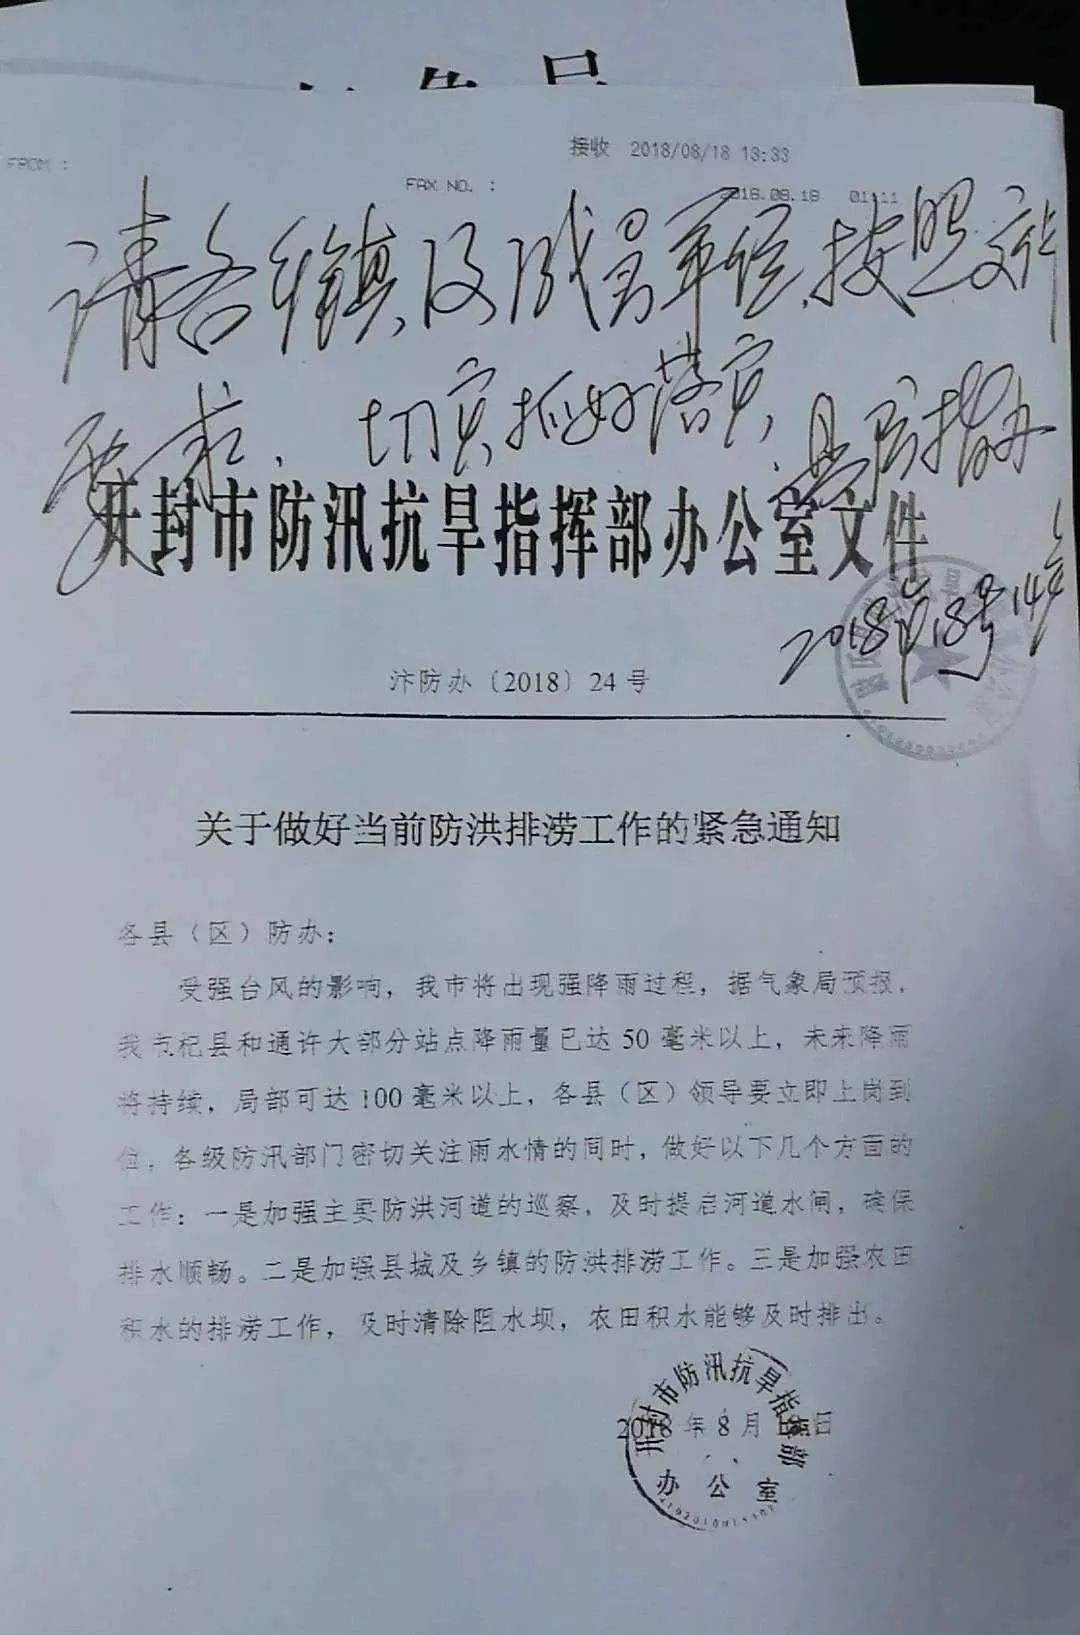 接收 2018/08/18 13:33
FROM :
FAX NO. :
2018.08.18 01:11
请各乡镇及成员单位,按照文件
要求,切实抓好落实,县防指办
开封市防汛抗旱指挥部办公室文件
2018年8月18号14时
汴防办〔2018〕24号
关于做好当前防洪排涝工作的紧急通知
各县（区）防办：
受强台风的影响，我市将出现强降雨过程，据气象局预报，
我市杞县和通许大部分站点降雨量已达 50 毫米以上，未来降雨
将持续，局部可达 100 毫米以上，各县（区）领导要立即上岗到
位，各级防汛部门密切关注雨水情的同时，做好以下几个方面的
工作：一是加强主要防洪河道的巡察，及时提启河道水闸，确保
排水顺畅。二是加强县城及乡镇的防洪排涝工作。三是加强农田
积水的排涝工作，及时清除阻水坝，农田积水能够及时排出。
开封市防汛抗旱指挥部
2018 年 8 月 日
办公室